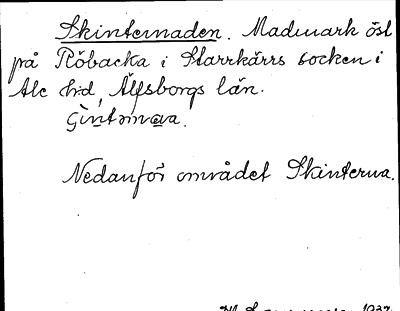 Skinternaden. Madmark öst
på Röbacka i Starrkärrs socken i
Ale hd, Älfsborgs län.
Nedanför området Skinterna.
1937